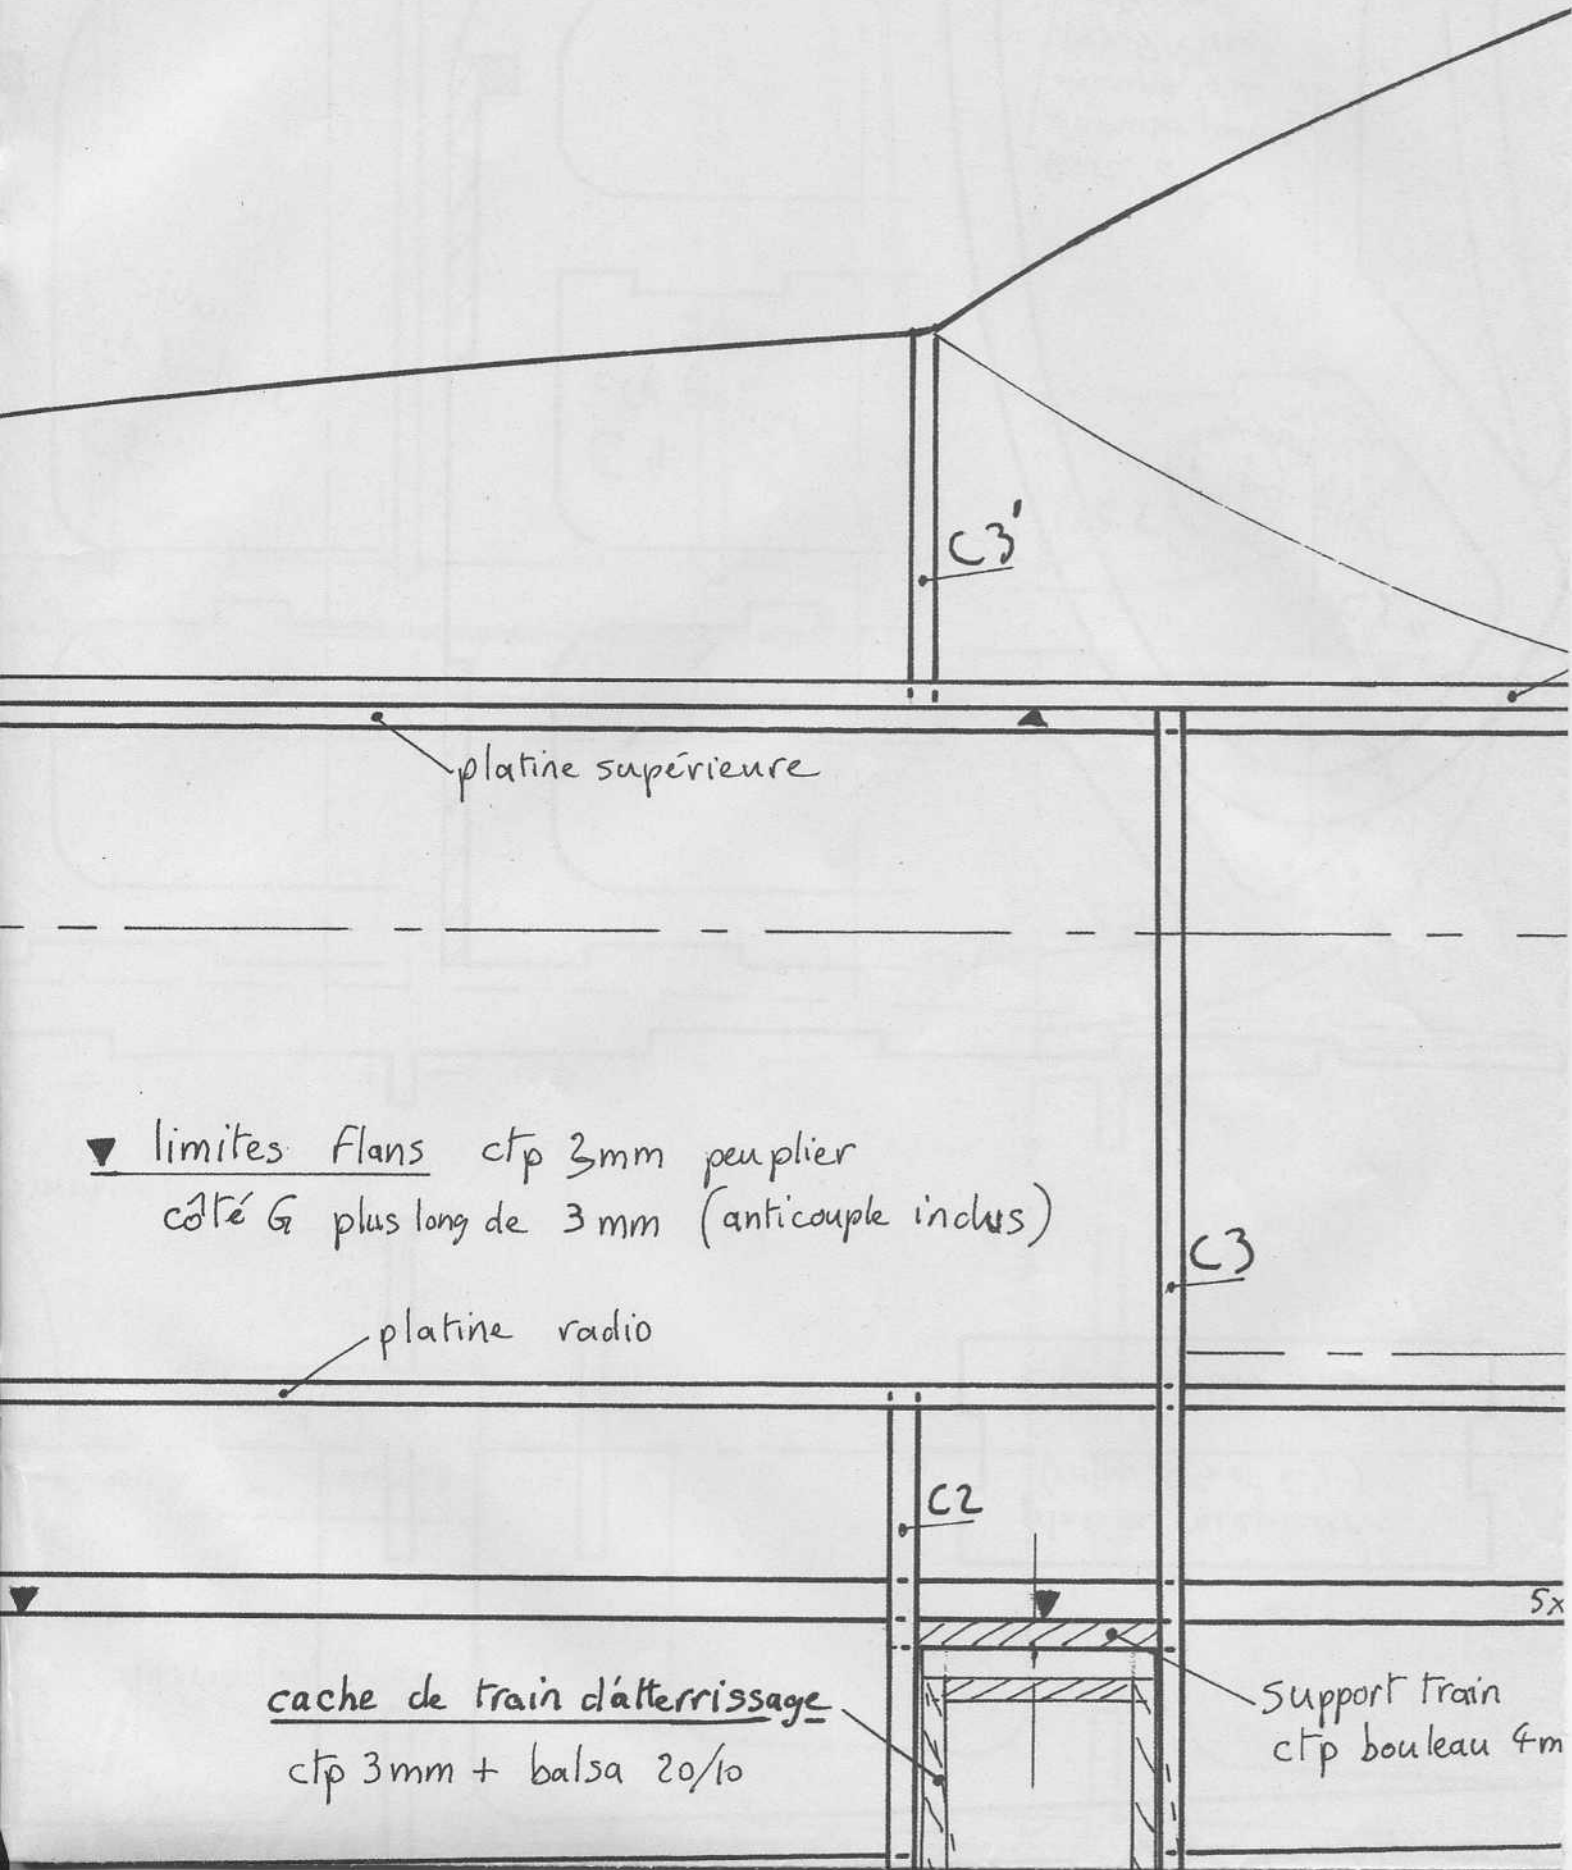 C3'
platine supérieure
▼ limites flans ctp 3mm peuplier
côté G plus long de 3 mm (anticouple inclus)
C3
platine radio
C2
5x
cache de train d'atterrissage
ctp 3mm + balsa 20/10
support train
ctp bouleau 4m